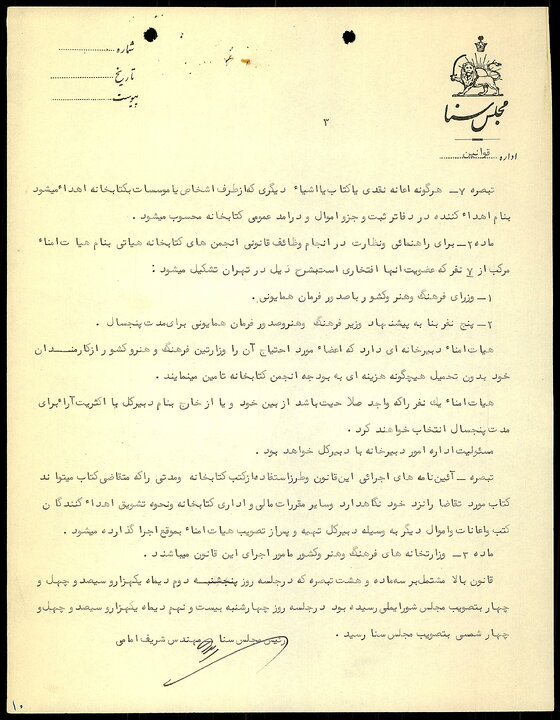 شماره
تاریخ
پیوست
مجلس سنا
اداره قوانین
۳
تبصره ۷ــ هرگونه اعانه نقدی یا کتاب یا اشیاء دیگری که از طرف اشخاص یا موسسات بکتابخانه اهداء میشود
بنام اهداء کننده در دفاتر ثبت و جزو اموال و درامد عمومی کتابخانه محسوب میشود .
ماده ۲ــ برای راهنمائی ونظارت در انجام وظائف قانونی انجمن های کتابخانه هیاتی بنام هیات امناء
مرکب از ۷ نفر که عضویت انها افتخاری است بشرح ذیل در تهران تشکیل میشود :
۱ــ وزرای فرهنگ وهنر وکشور با صدور فرمان همایونی .
۲ــ پنج نفر بنا به پیشنهاد وزیر فرهنگ وهنر وصدور فرمان همایونی برای مدت پنجسال .
هیات امناء دبیرخانه ای دارد که اعضاء مورد احتیاج آن را وزارتین فرهنگ و هنر و کشور از کارمنـــدان
خود بدون تحمیل هیچگونه هزینه ای به بودجه انجمن کتابخانه تامین مینمایند .
هیات امناء یك نفر راکه واجد صلاحیت باشد از بین خود و یا از خارج بنام دبیرکل با اکثریت آراء برای
مدت پنجسال انتخاب خواهند کرد .
مسئولیت اداره امور دبیرخانه با دبیرکل خواهد بود .
تبصره ــ آئین نامه های اجرائی این قانون وطرز استفاده از کتب کتابخانه ومدتی راکه متقاضی کتاب میتواند
کتاب مورد تقاضا را نزد خود نگاهدارد وسایر مقررات مالی و اداری کتابخانه ونحوه تشویق اهداء کنندگان
کتب واعانات واموال دیگر به وسیله دبیرکل تهیه و پس از تصویب هیات امناء بموقع اجرا گذارده میشود .
ماده ۳ــ وزارتخانه های فرهنگ وهنر وکشور مامور اجرای این قانون میباشند .
قانون بالا مشتمل بر سه ماده و هشت تبصره که در جلسه روز پنجشنبه دوم دیماه یکهزار و سیصد و چهل و
چهار بتصویب مجلس شورایملی رسیده بود در جلسه روز چهارشنبه بیست و نهم دیماه یکهزار و سیصد و چهل و
چهار شمسی بتصویب مجلس سنا رسید .
رئیس مجلس سنا ــ مهندس شریف امامی
۱۰